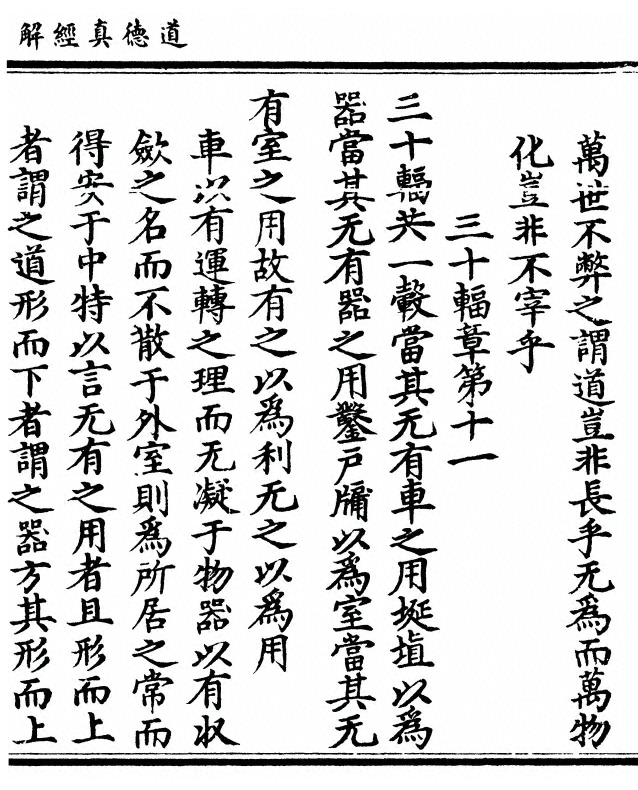 道德真經解
萬世不弊之謂道豈非長乎无爲而萬物
化豈非不宰乎
三十輻章第十一
三十輻共一轂當其无有車之用埏埴以爲
器當其无有器之用鑿戶牖以爲室當其无
有室之用故有之以爲利无之以爲用
車以有運轉之理而无凝于物器以有収
斂之名而不散于外室則爲所居之常而
得安于中特以言无有之用者且形而上
者謂之道形而下者謂之器方其形而上